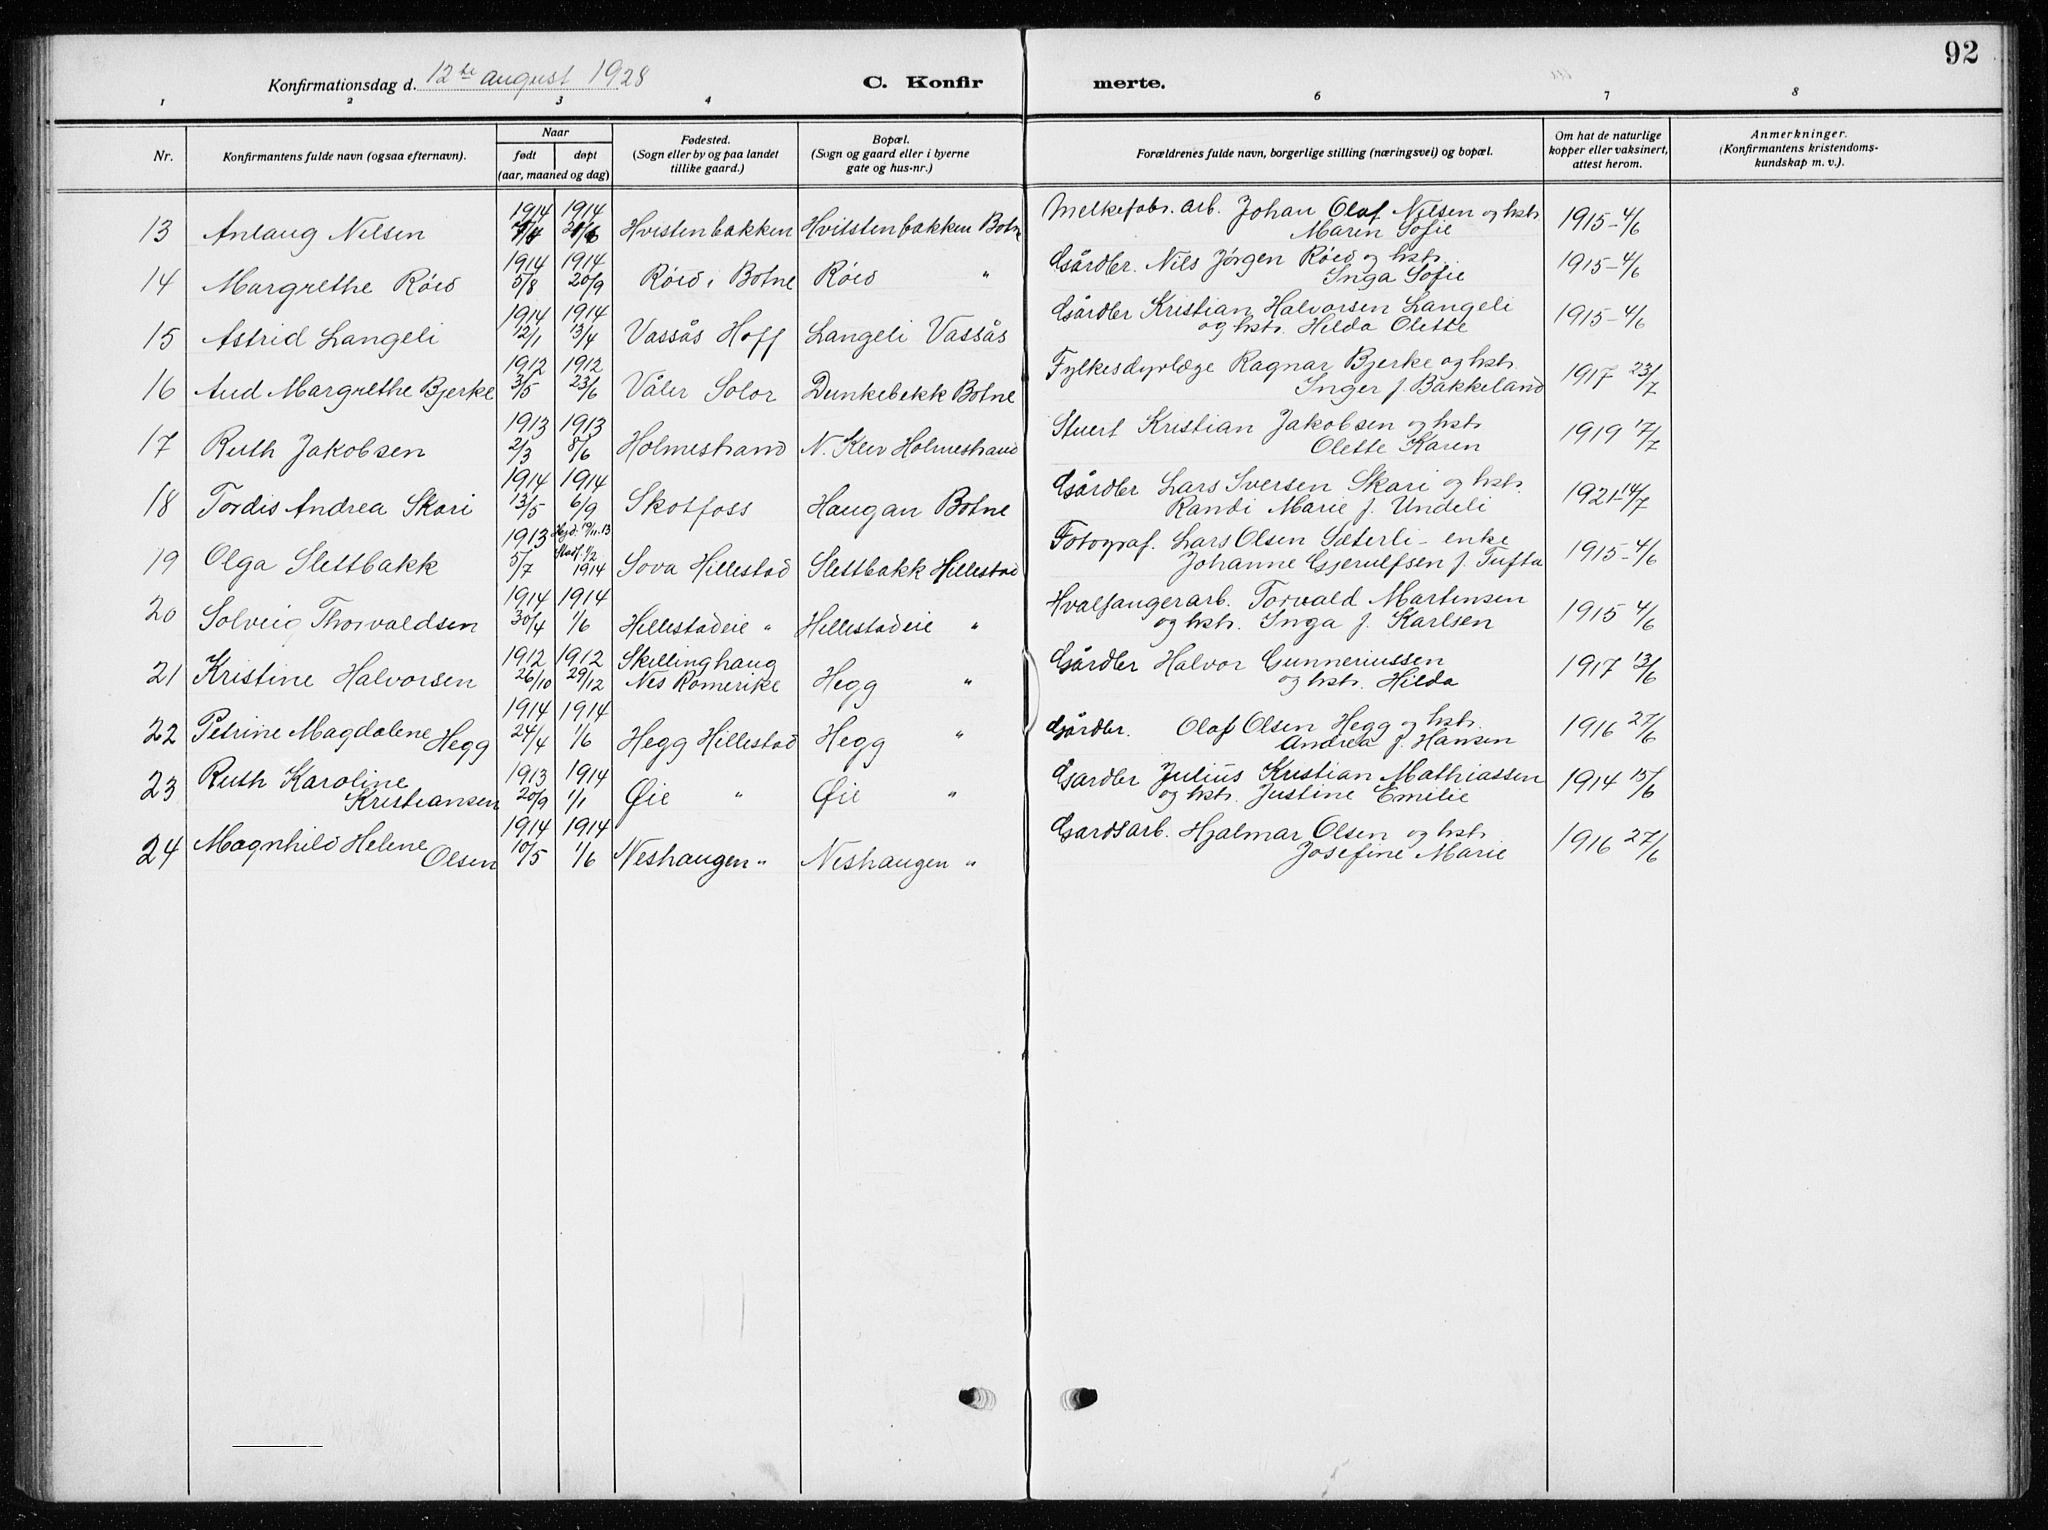 92
Konfirmationsdag d. 12te august 1928 C. Konfirmerte.
1 2 3 4 5 6 7 8
Nr. Konfirmantens fulde navn (ogsaa efternavn). Naar født døpt (aar, maaned og dag) Fødested. (Sogn eller by og paa landet tillike gaard.) Bopæl. (Sogn og gaard eller i byerne gate og hus-nr.) Forældrenes fulde navn, borgerlige stilling (næringsvei) og bopæl. Om hat de naturlige kopper eller vaksinert, attest herom. Anmerkninger. (Konfirmantens kristendomskundskap m. v.).
13 Anlaug Nilsen 1914 1914 Hvistenbakken Hvitstenbakken Botne Melkefabr. arb. Johan Olaf Nilsen og hstr. Maren Sofie 1915 - 4/6
14 Margrethe Röed 1914 5/8 1914 20/9 Röed i Botne Röed " Gårdbr. Nils Jörgen Röed og hstr. Inga Sofie 1915 - 4/6
15 Astrid Langeli 1914 12/1 1914 13/4 Vassås Hoff Langeli Vassås Gårdbr Kristian Halvorsen Langeli og hstr. Hilda Olette 1915 - 4/6
16 Aud Margrethe Bjerke 1912 3/5 1912 23/6 Våler Solør Dunkebekk Botne Fylkesdyrlæge Ragnar Bjerke og hstr. Inger f. Bakkeland 1917 23/7
17 Ruth Jakobsen 1913 2/3 1913 8/6 Holmestrand N. Klev Holmestrand Stuert Kristian Jakobsen og hstr. Olette Karen 1919 17/7
18 Tordis Andrea Skari 1914 13/5 1914 6/9 Skotfoss Haugan Botne Gårdbr Lars Iversen Skari og hstr. Randi Marie f. Undeli 1921 - 14/7
19 Olga Slettbakk 1913 5/7 Hjd. 19/11.13 Stadf. 1/2 1914 Sova Hillestad Slettbakk Hillestad Fotograf. Lars Olsen Sæterli - enke Johanne Gjerulfsen f. Tufta 1915 - 4/6
20 Solveig Thorvaldsen 1914 30/4 1914 1/6 Hillestadeie " Hillestadeie " Hvalfangerarb. Torvald Martensen og hstr. Inga f. Karlsen 1915 4/6
21 Kristine Halvorsen 1912 26/10 1912 29/12 Skillinghaug Nes Romerike Hegg " Gårdbr Halvor Gunneriussen og hstr. Hilda 1917 13/6
22 Petrine Magdalene Hegg 1914 24/4 1914 1/6 Hegg Hillestad Hegg " Gårdbr. Olaf Olsen Hegg og hstr. Andrea f. Hansen 1916 27/6
23 Ruth Karoline Kristiansen 1913 20/9 1914 1/1 Øie " Øie " Gardbr Julius Kristian Mathiassen og hstr. Justine Emilie 1914 15/6
24 Magnhild Helene Olsen 1914 10/5 1914 1/6 Neshaugen " Neshaugen " Gardsarb. Hjalmar Olsen og hstr. Josefine Marie 1916 27/6